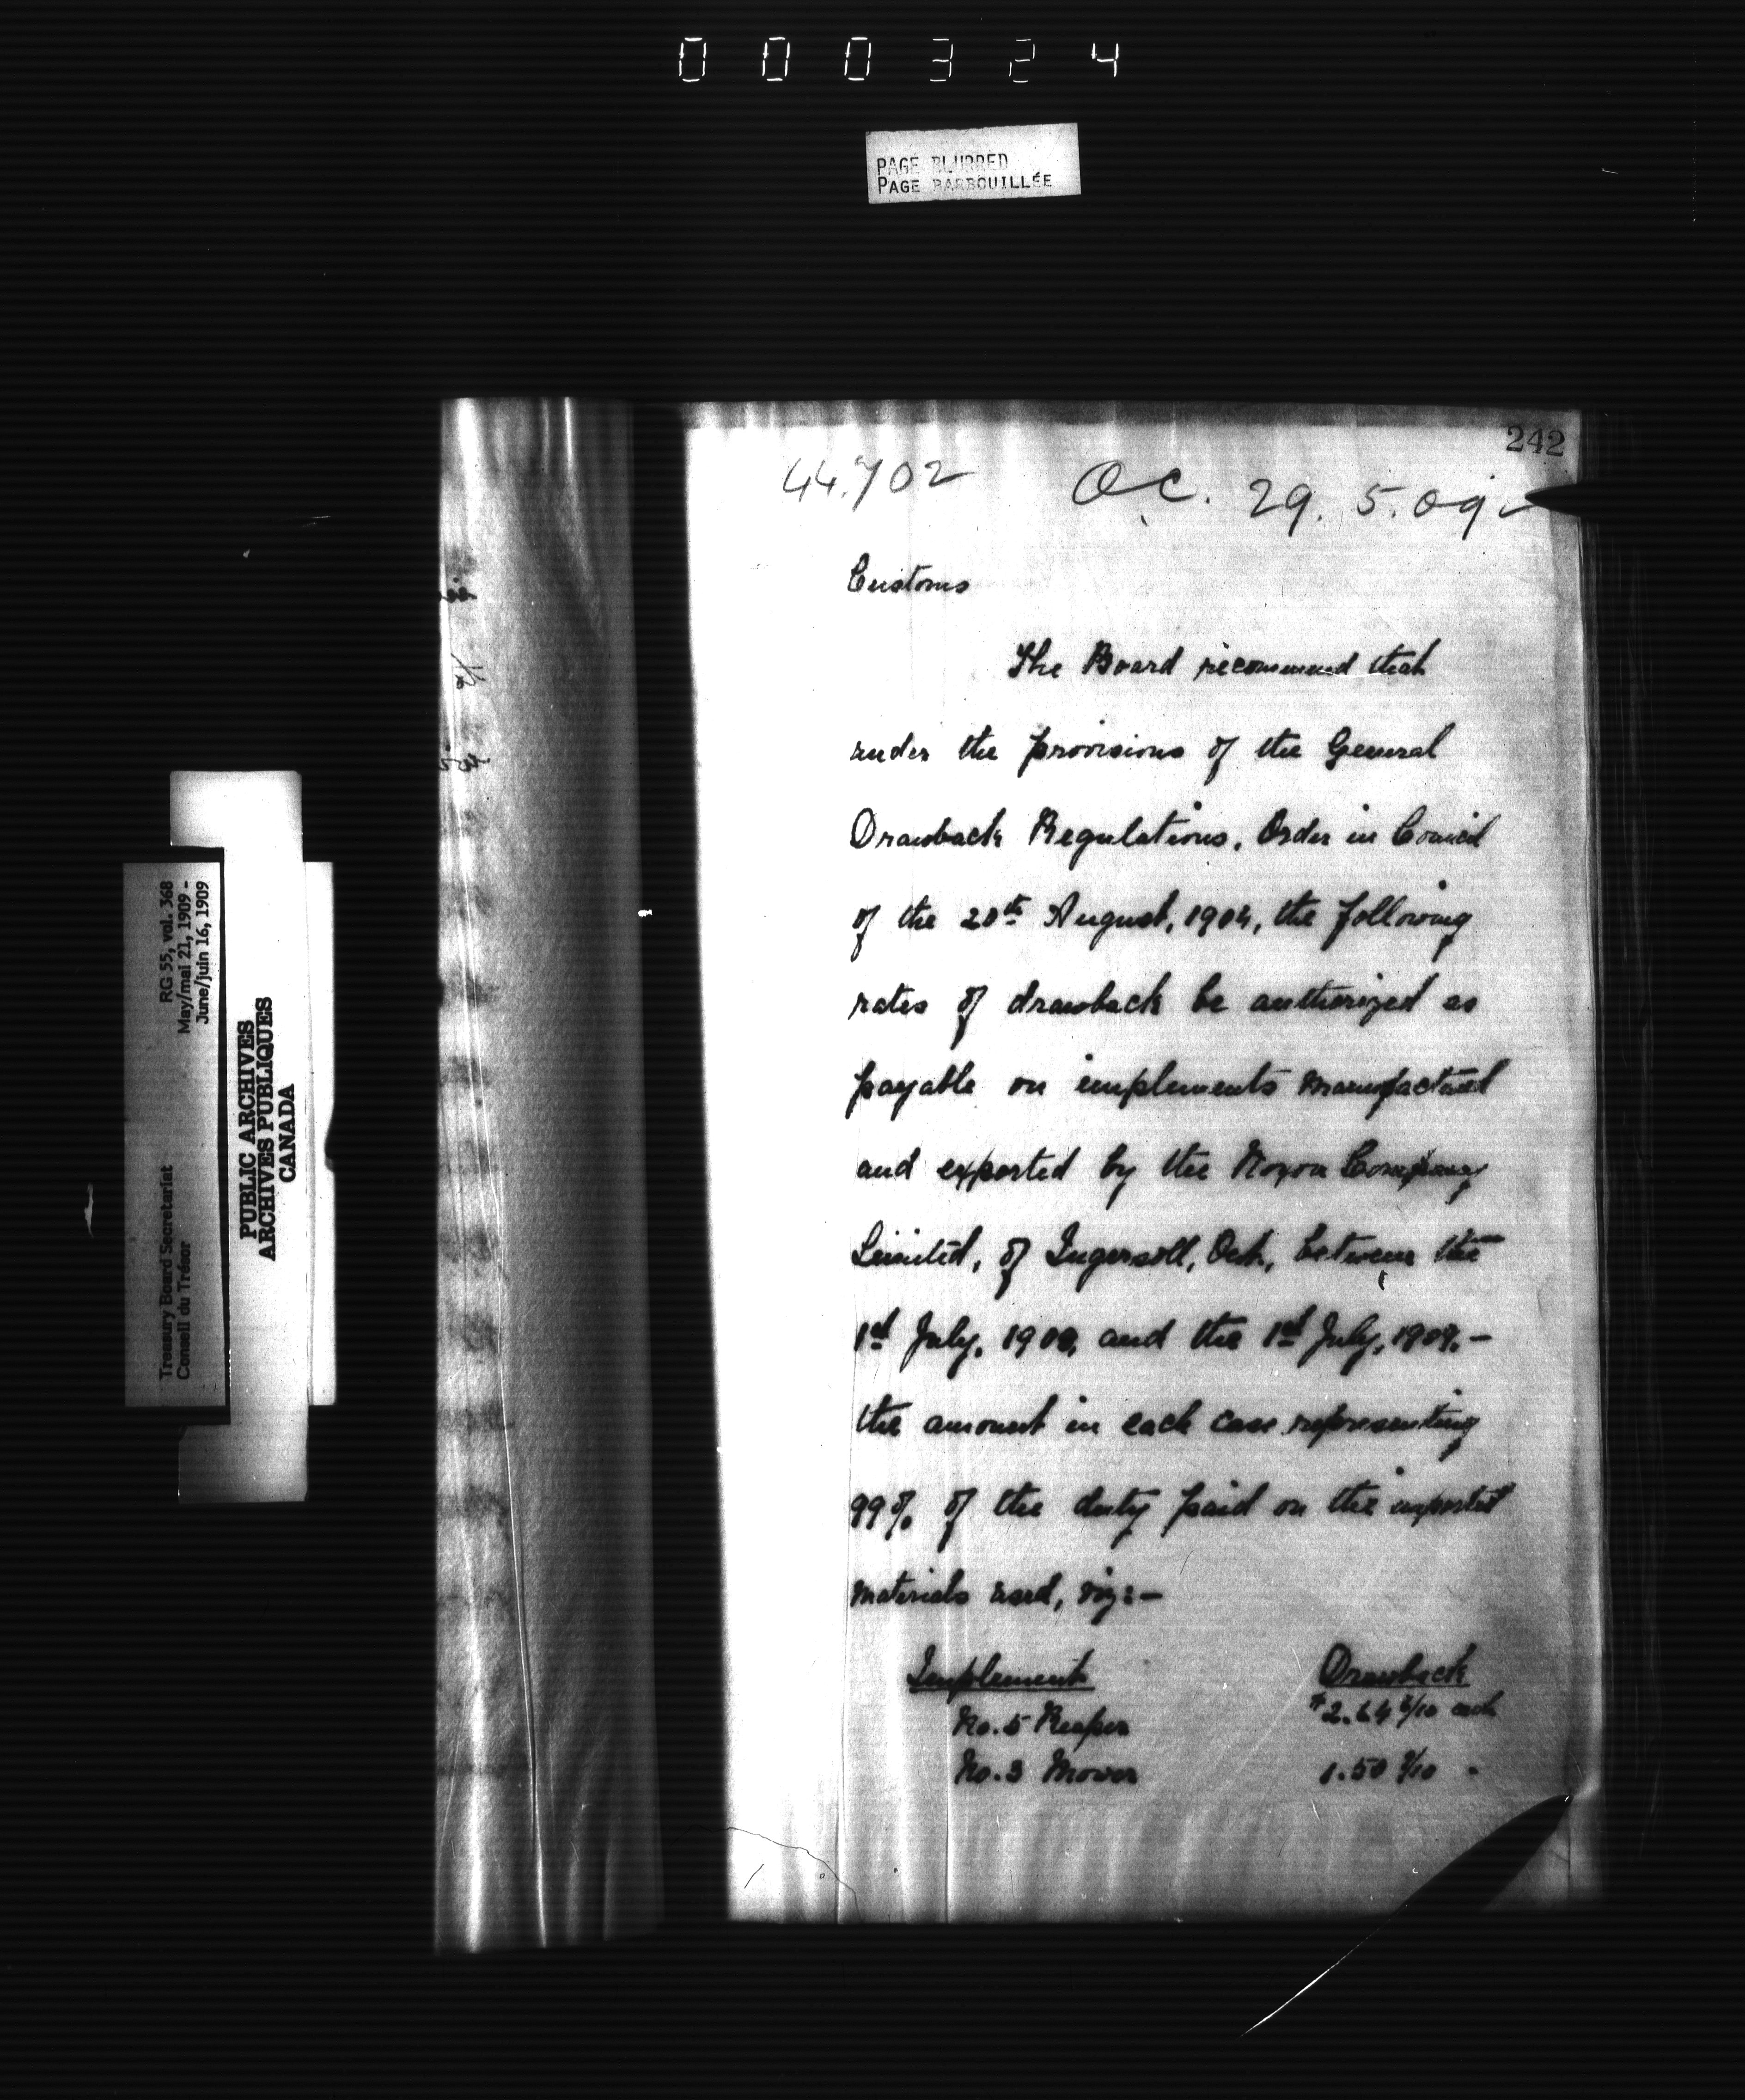 000324
PAGE BLURRED
PAGE BARBOUILLÉE
242
44.702 O.C. 29.5.09
Customs
The Board recommend that
under the provisions of the General
Drawback Regulations, Order in Council
of the 20th August, 1904, the following
rates of drawback be authorized as
payable on implements manufactured
and exported by the Noxon Company
Limited, of Ingersoll, Ont., between the
1st July, 1908, and the 1st July, 1909,-
the amount in each case representing
99% of the duty paid on the imported
materials used, viz:-
Implement Drawback
No. 5 Reaper each
No. 3 Mower 1.50
Treasury Board Secretariat RG 55, vol. 368
Conseil du Trésor May/mai 21, 1909 -
June/juin 16, 1909
PUBLIC ARCHIVES
ARCHIVES PUBLIQUES
CANADA